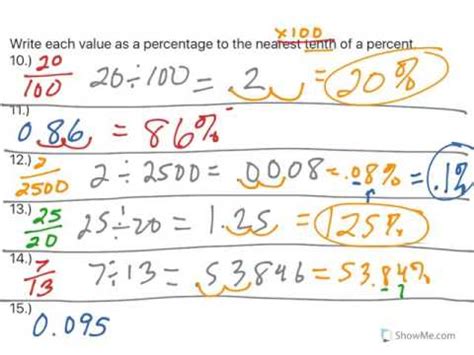 x100
Write each value as a percentage to the nearest tenth of a percent.
10.) 20/100 20÷100 = .2 = 20%
11.) 0.86 = 86%
12.) 2/2500 2÷2500 = .0008 = .08% = .1%
13.) 25/20 25÷20 = 1.25 = 125%
14.) 7/13 7÷13 = .53846 = 53.84%
15.) 0.095
ShowMe.com